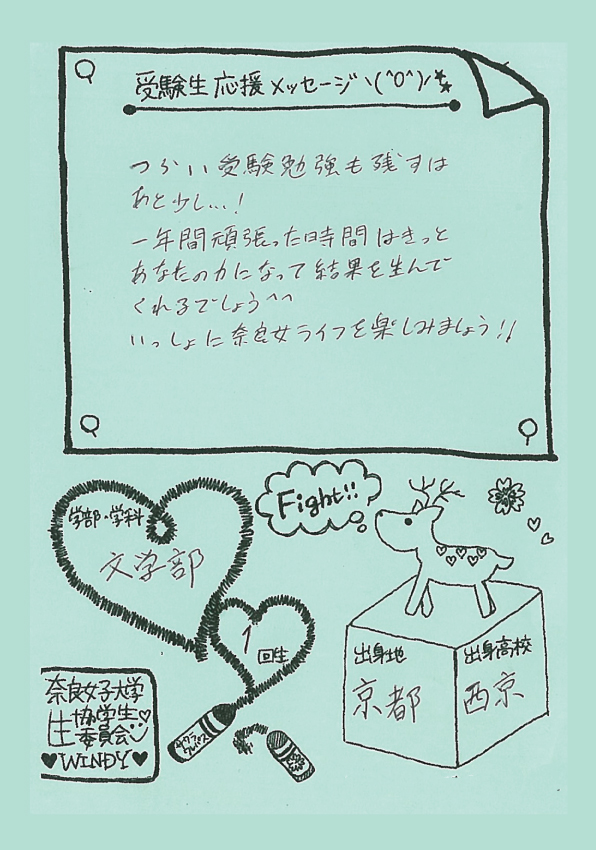 受験生応援メッセージヽ(^0^)ﾉ
つらい受験勉強も残すは
あと少し…!
一年間頑張った時間はきっと
あなたの力になって結果を生んで
くれるでしょう^^
いっしょに奈良女ライフを楽しみましょう!!
Fight!!
学部・学科
文学部
1回生
出身地
京都
出身高校
西京
奈良女子大学
生協学生
委員会
♥WINDY♥
サクラ
クレパス